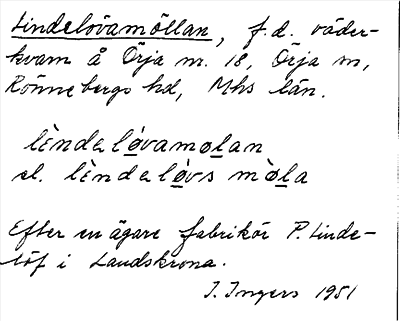 Lindelövamöllan, f.d. väder-
kvarn å Örja nr. 18, Örja sn,
Rönnebergs hd, Mhs län.
lèndaløvamølan
el. lèndaløvs mø̀la
Efter en ägare fabrikör P. Linde-
löf i Landskrona.
I. Ingers 1951